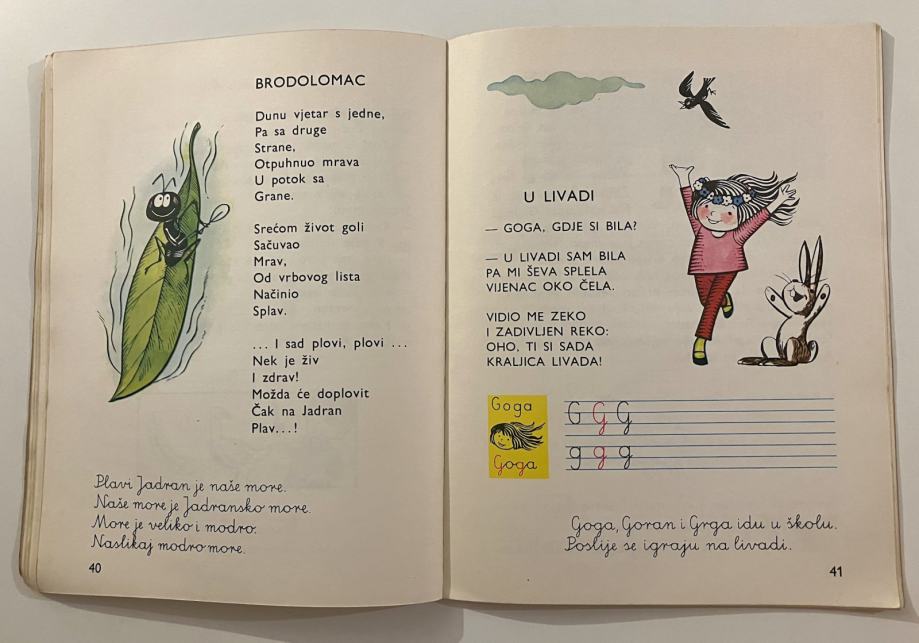 BRODOLOMAC
Dunu vjetar s jedne,
Pa sa druge
Strane,
Otpuhnuo mrava
U potok sa
Grane.
Srećom život goli
Sačuvao
Mrav,
Od vrbovog lista
Načinio
Splav.
... I sad plovi, plovi ...
Nek je živ
I zdrav!
Možda će doplovit
Čak na Jadran
Plav...!
Plavi Jadran je naše more.
Naše more je Jadransko more.
More je veliko i modro.
Naslikaj modro more.
40
U LIVADI
— GOGA, GDJE SI BILA?
— U LIVADI SAM BILA
PA MI ŠEVA SPLELA
VIJENAC OKO ČELA.
VIDIO ME ZEKO
I ZADIVLJEN REKO:
OHO, TI SI SADA
KRALJICA LIVADA!
Goga
Goga
G G G
g g g
Goga, Goran i Grga idu u školu.
Poslije se igraju na livadi.
41